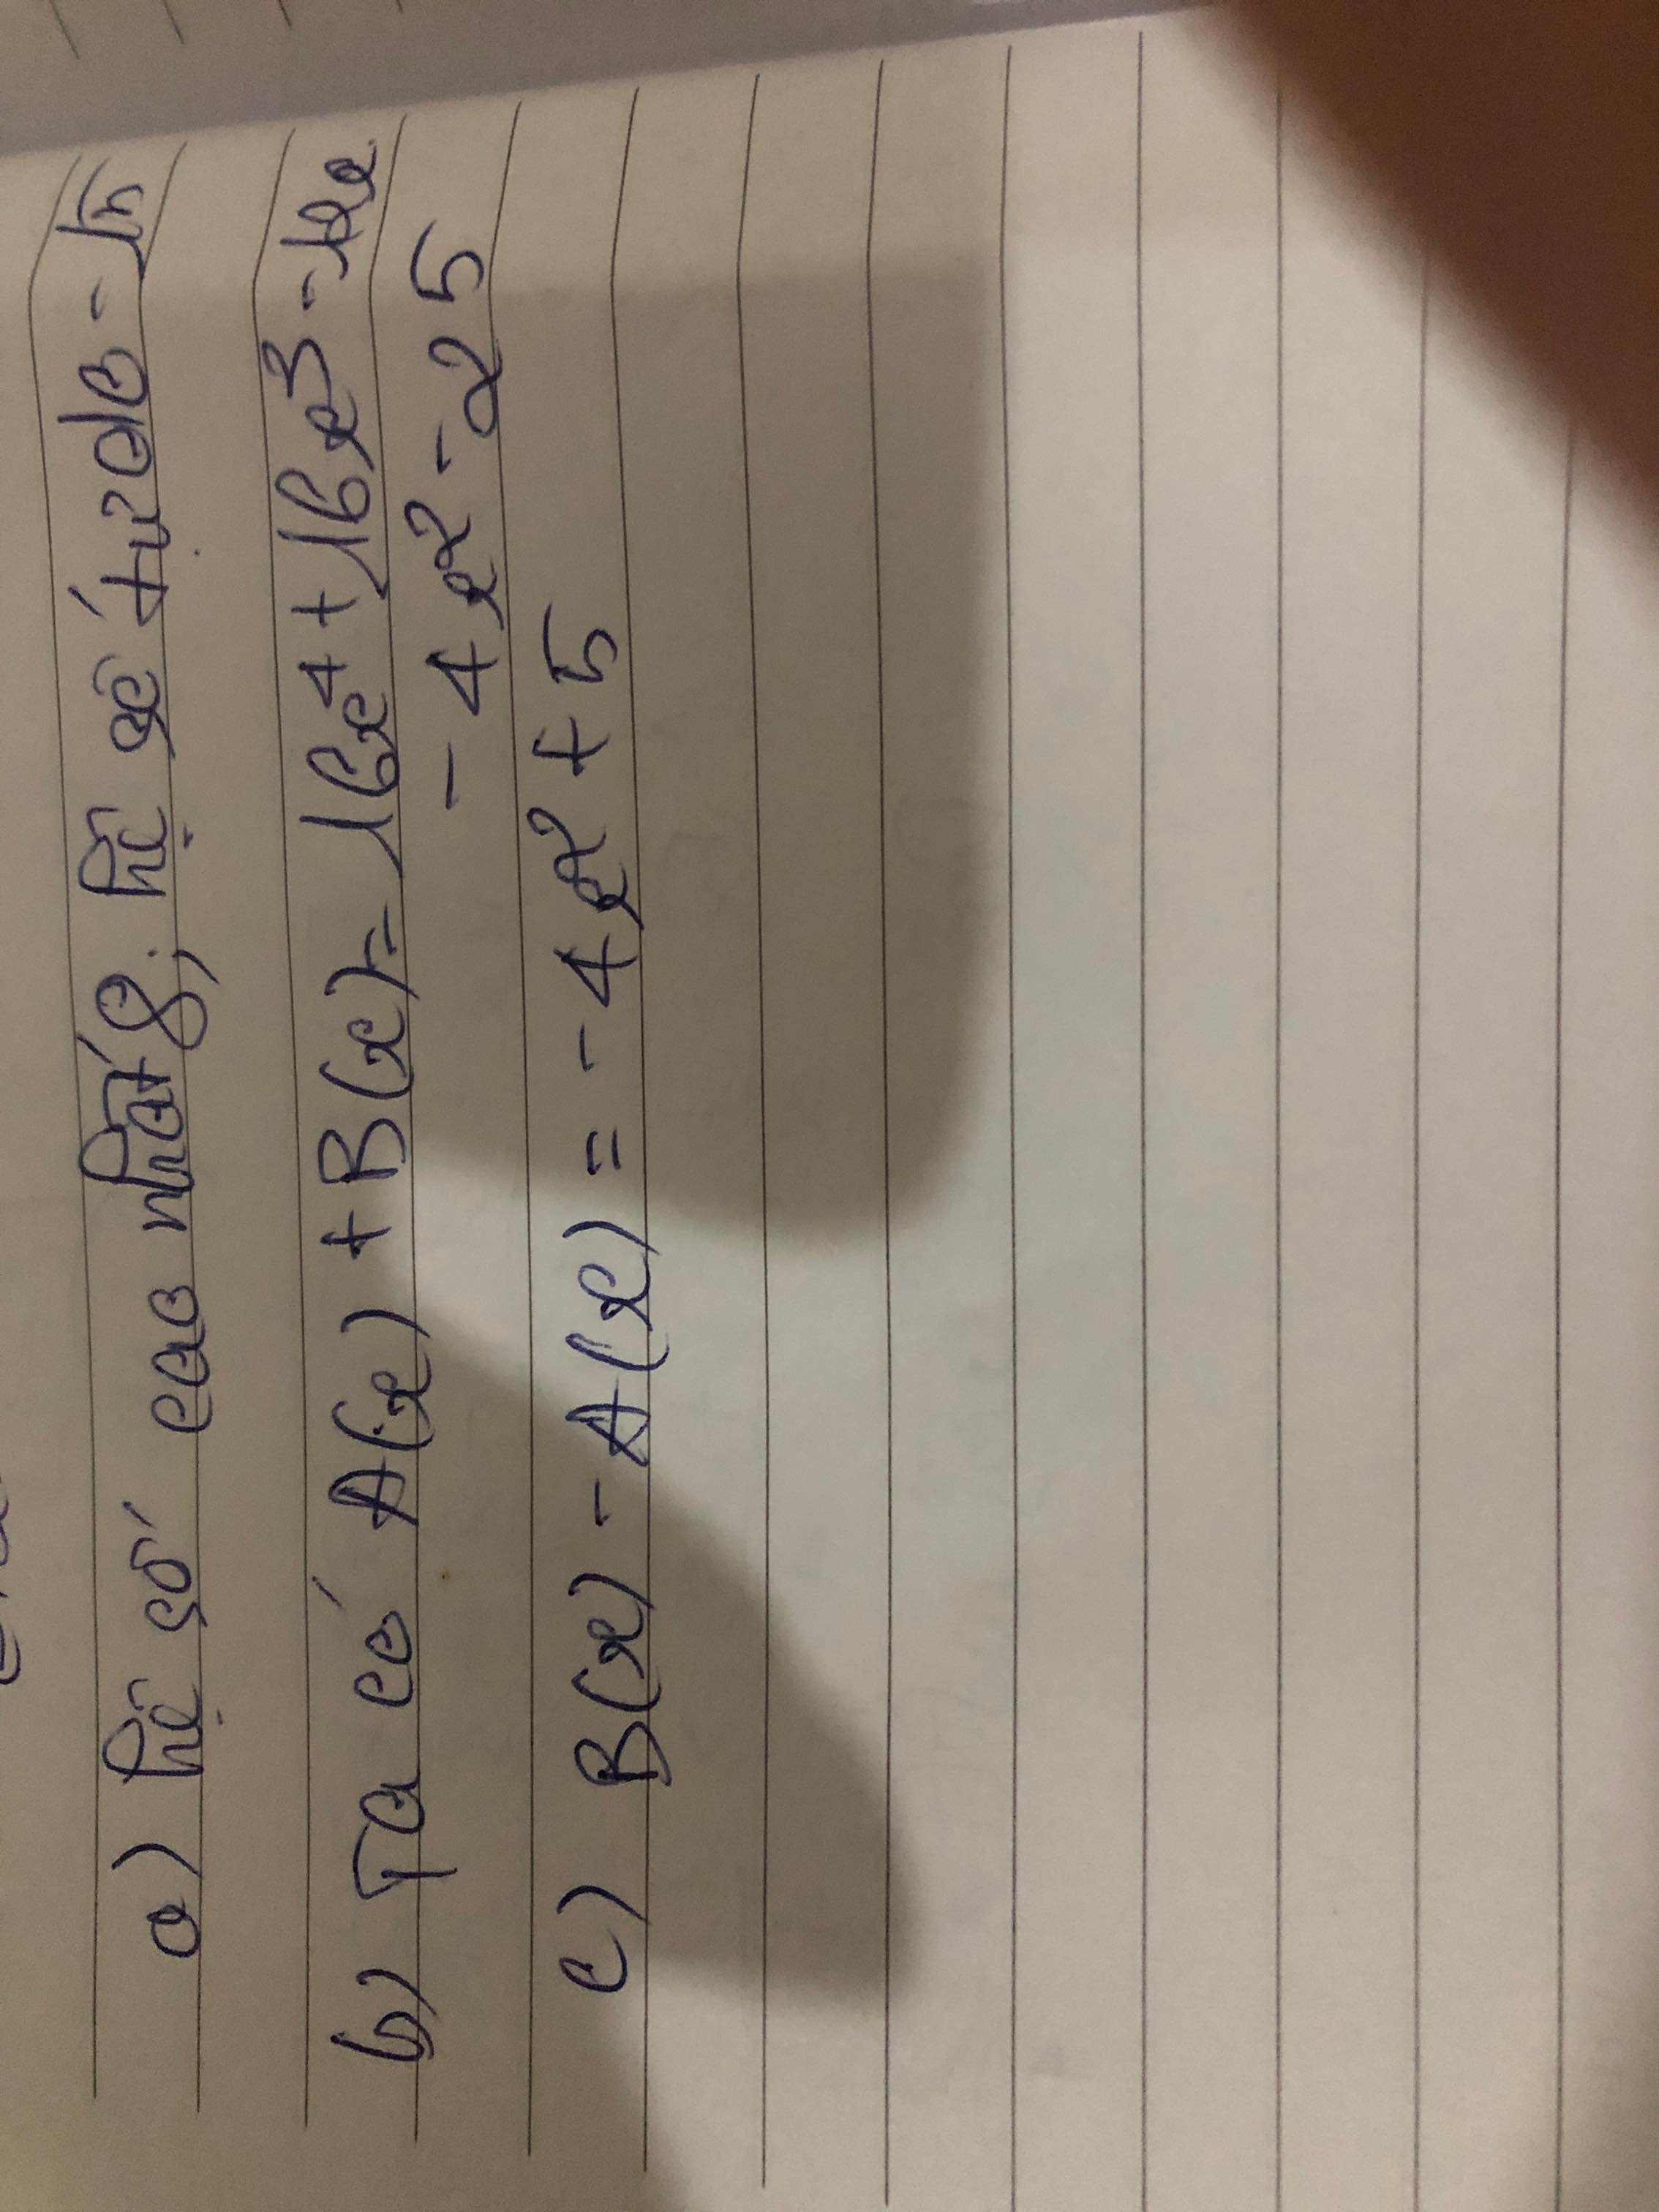 a) hệ số cao nhất 8; hệ số tự do - 15
b) Ta có A(x) + B(x) = 16x⁴ + 16x³ - 12x
- 4x² - 25
c) B(x) - A(x) = - 4x² + 5